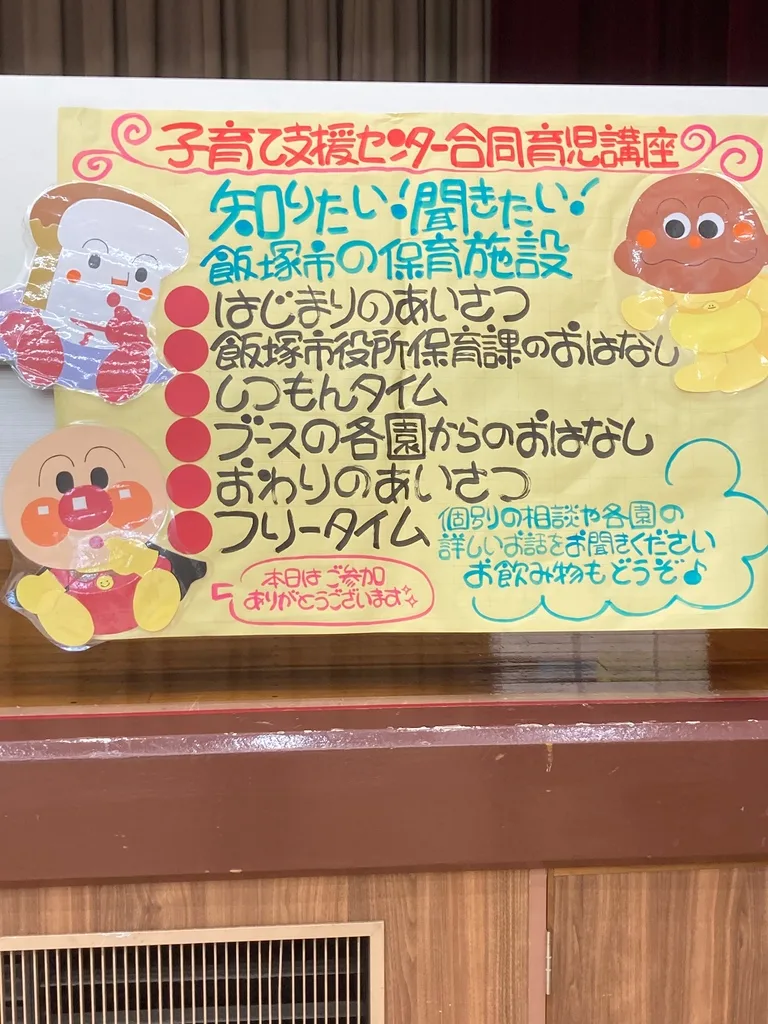 子育て支援センター合同育児講座
知りたい!聞きたい!
飯塚市の保育施設
はじまりのあいさつ
飯塚市役所保育課のおはなし
しつもんタイム
ブースの各園からのおはなし
おわりのあいさつ
フリータイム
個別の相談や各園の
詳しいお話をお聞きください
お飲み物もどうぞ♪
本日はご参加
ありがとうございます